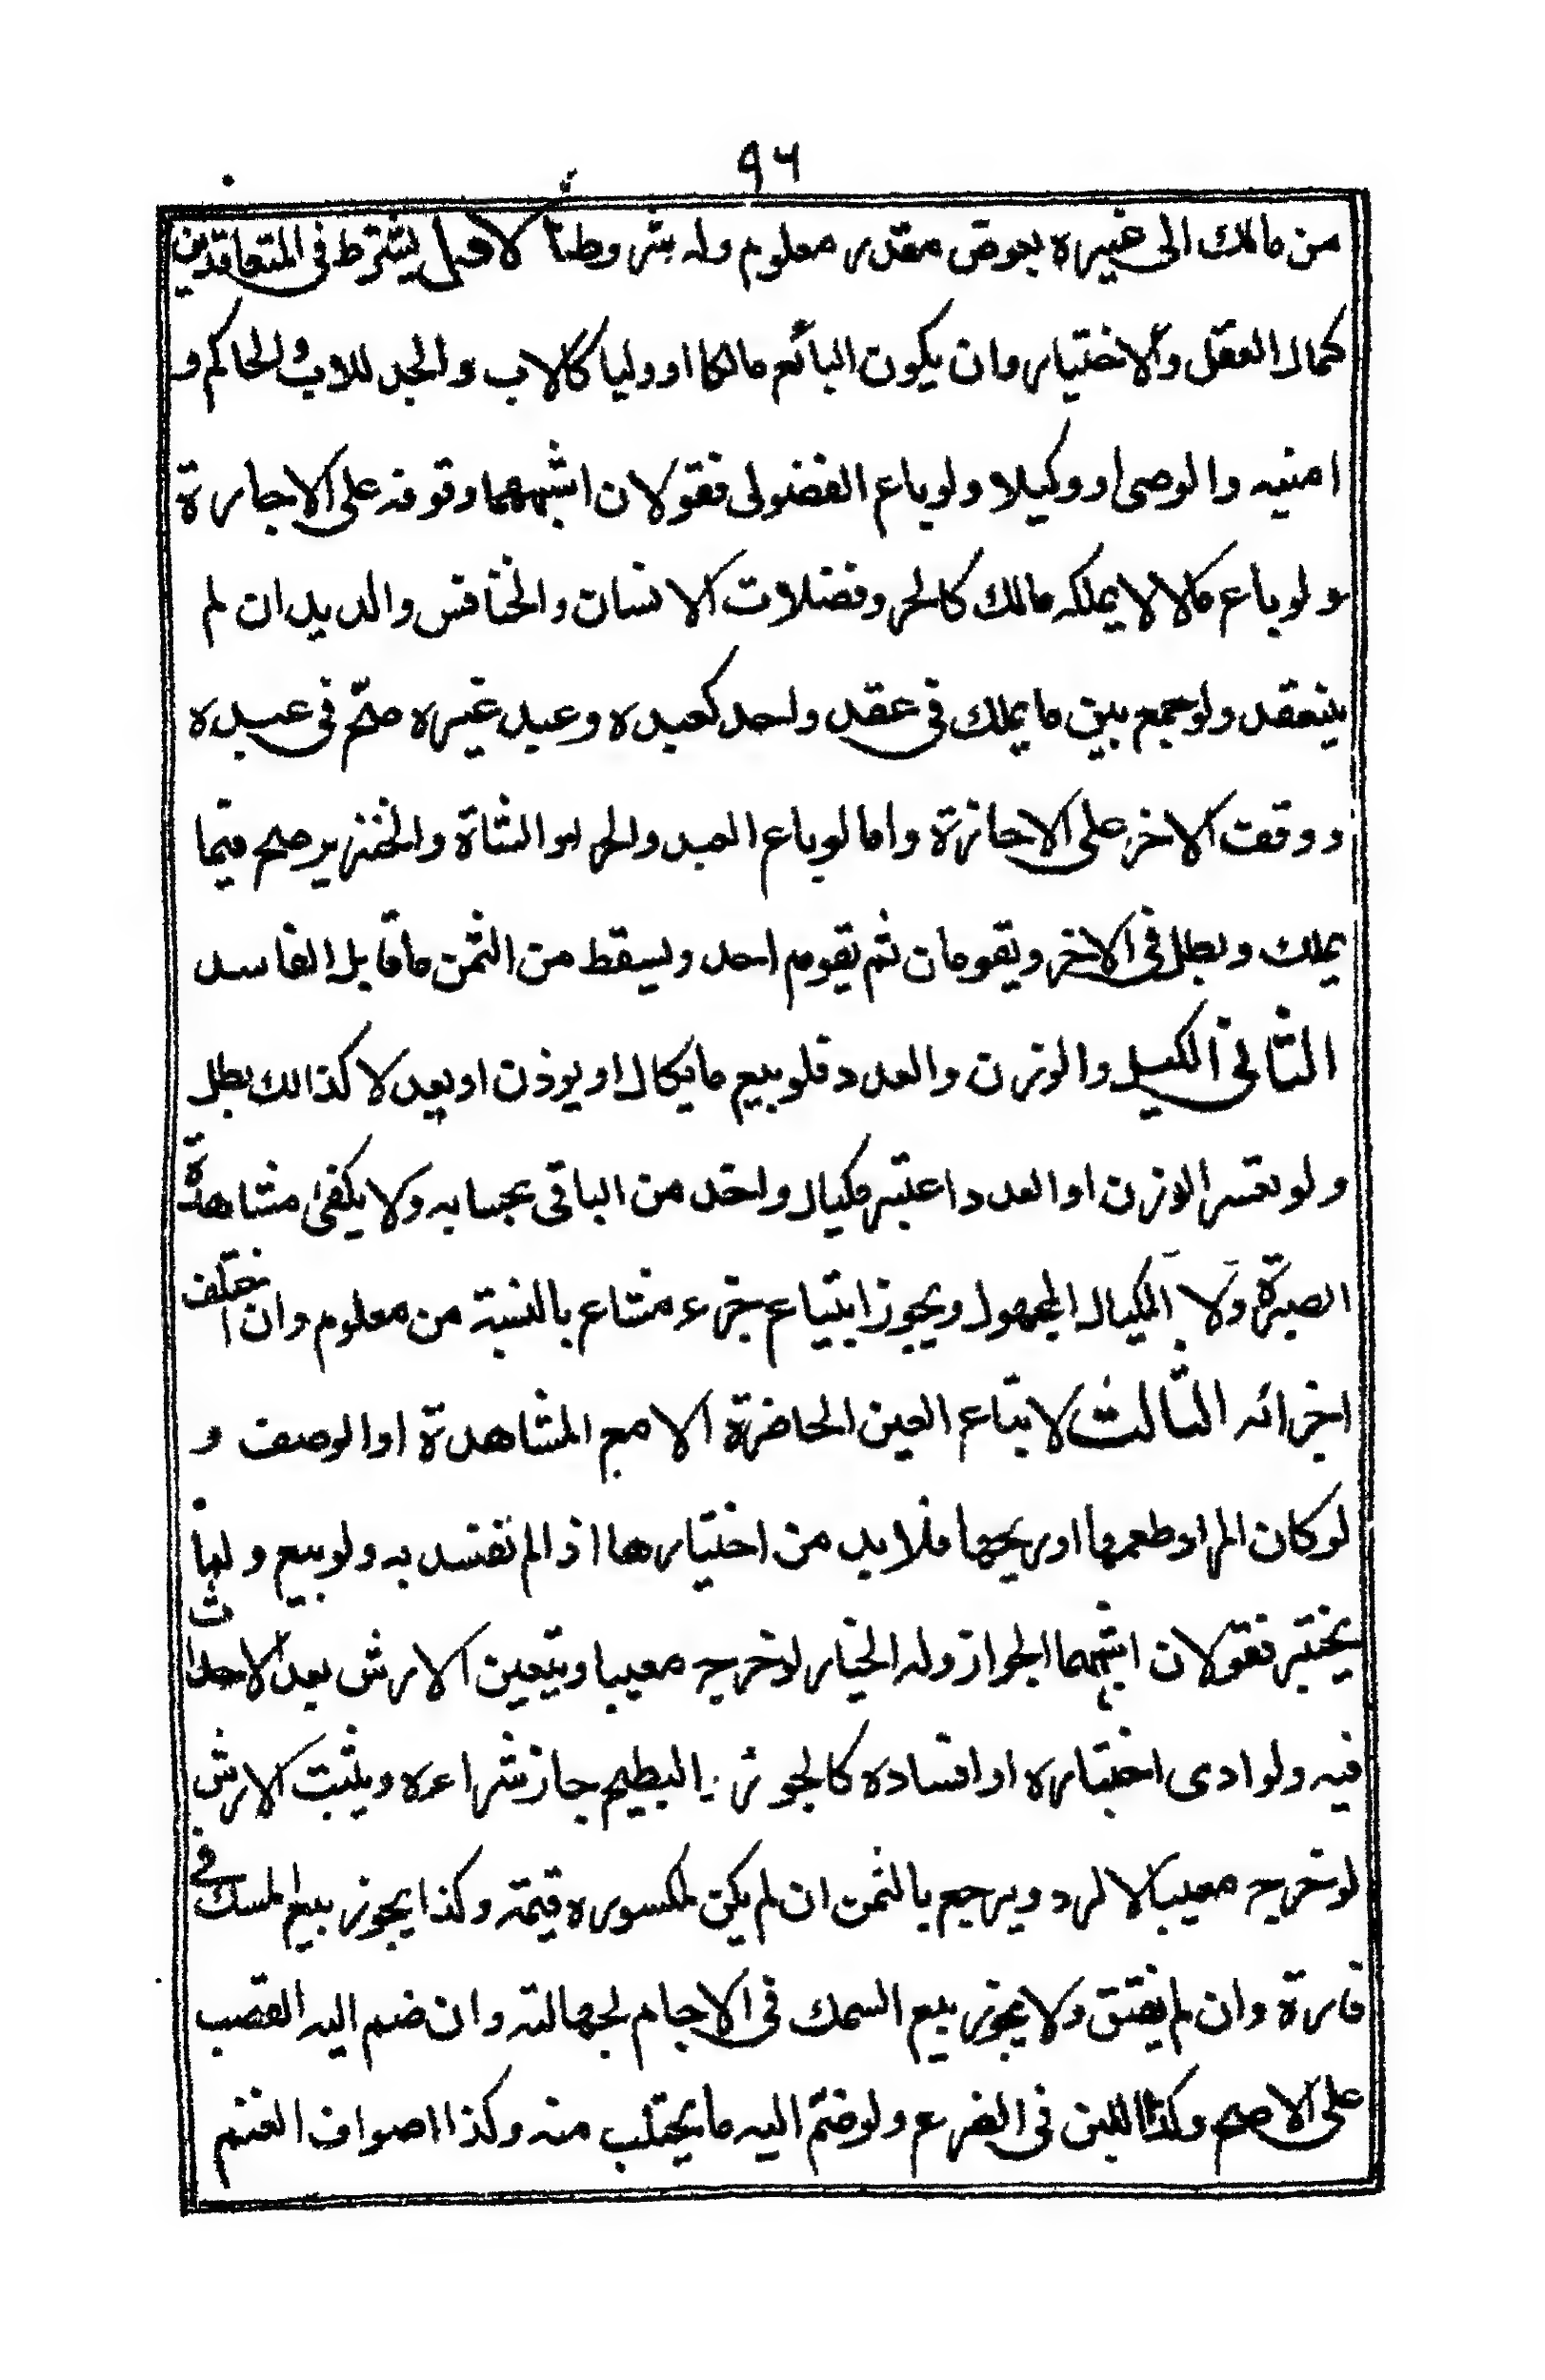 ٩٦
من مالك الى غيره بعوض مقدر معلوم وله شروط الاول يشترط فى المتعاقدين
كمال العقل والاختيار وان يكون البائع مالكا او وليا كالاب والجد للاب والحاكم و
امنيه والوصى او وكيلا ولو باع الفضولى فقولان اشبههما وقوفه على الاجارة
ولو باع مالا لا يملكه مالك كالحر وفضلات الانسان والخنافس والديدان لم
ينعقد ولو جمع بين ما يملك فى عقد واحد كعبده وعبد غيره صح فى عبده
ووقفت الاخر على الاجازة واما لو باع العبد والحر او الشاة والخنزير صح فيما
يملك وبطل فى الاخر ويقومان ثم يقوم احد ويسقط من الثمن ما قابل الفاسد
الثانى الكيل والوزن والعدد فلو بيع ما يكال او يوذن او يعد لا كذالك بطل
ولو تعسر الوزن او العدد اعتبر مكيال واحد من الباقى بحسابه ولا يكفى مشاهدة
الصبرة ولا المكيال المجهول ويجوز ابتياع جزء مشاع بالنسبة من معلوم وان اختلف
اجزائه الثالث لا يتاع العين الحاضرة الا مع المشاهدة او الوصف و
لو كان المراد طعمها او ريحها فلا بد من اختيارها اذا لم تفسد به ولو بيع ولما
يختبر فقولان اشبههما الجواز وله الخيار لو خرج معيبا ويتعين الارش بعد الاحداث
فيه ولو ادى اختباره او افساده كالجوز والبطيح جاز شراءه ويثبت الارش
لو خرج معيبا لا لرد ويرجع بالثمن ان لم يكن لمكسوره قيمة وكذا يجوز بيع المسك فى
فارة وان لم يفتق ولا يجوز بيع السمك فى الاجام لجهالته وان ضم اليه القصب
على الاصح وكذا اللبن فى الضرع ولو ضم اليه ما يحتلب منه وكذا اصواف الغنم